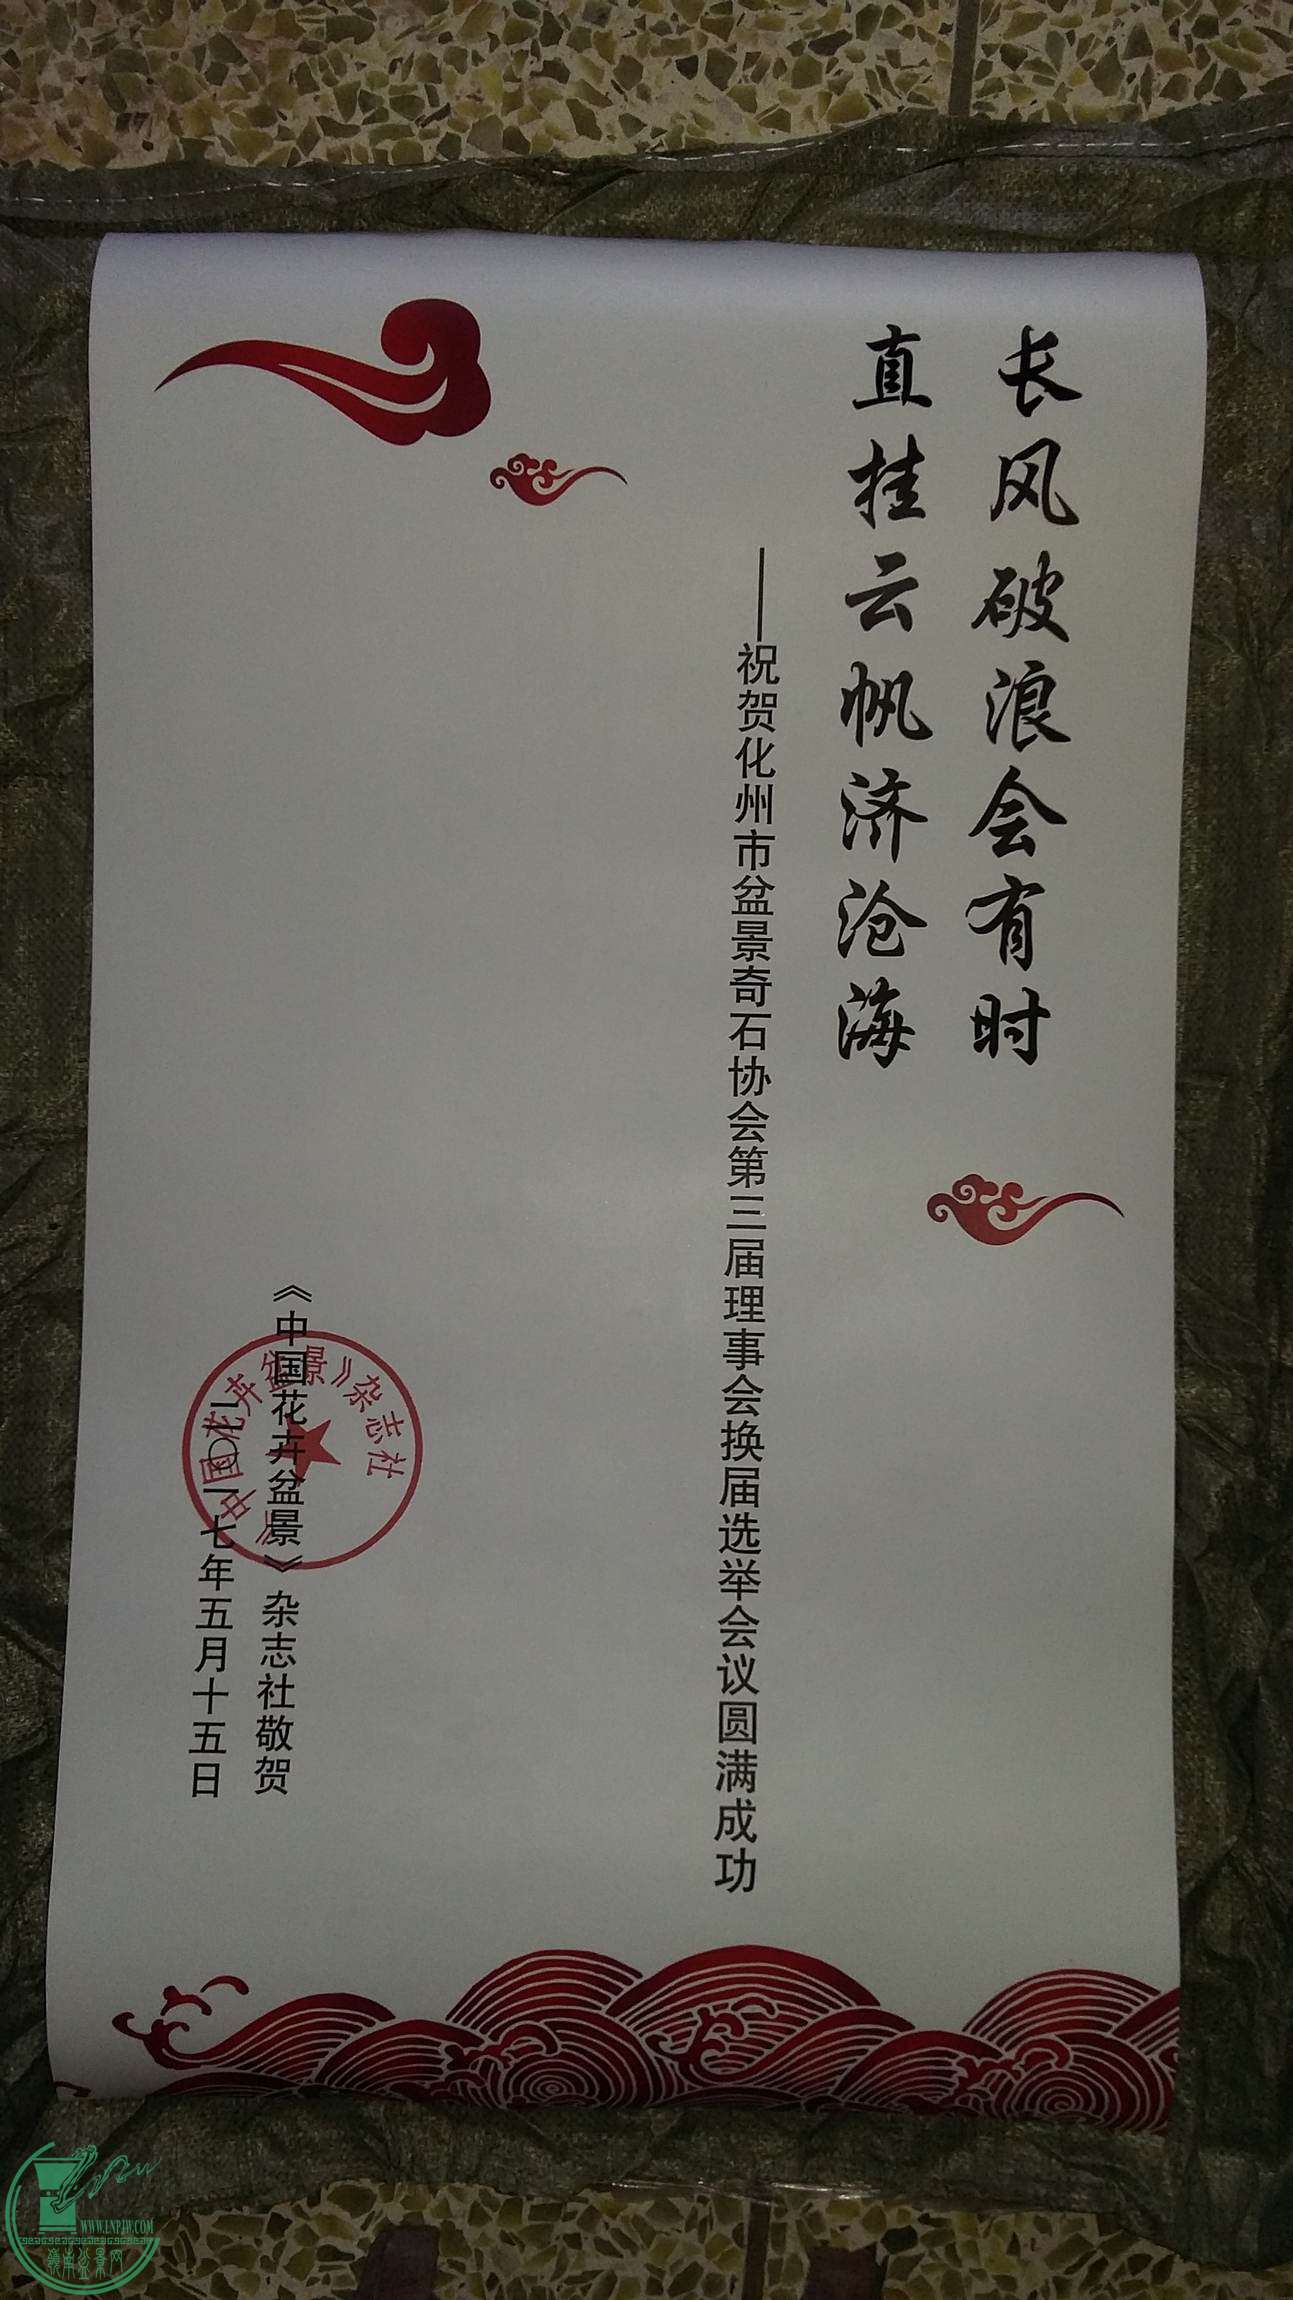 长风破浪会有时
直挂云帆济沧海
——祝贺化州市盆景奇石协会第三届理事会换届选举会议圆满成功
《中国花卉盆景》杂志社敬贺
二〇一七年五月十五日
《中国花卉盆景》杂志社
WWW.LNPJW.COM
嶺南盆景网